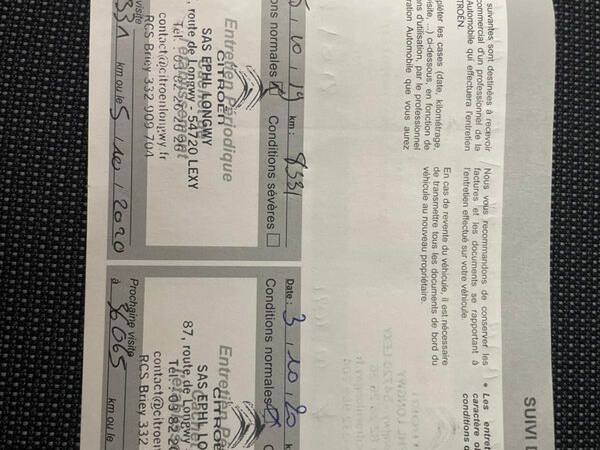 SUIVI D
suivantes sont destinées à recevoir
commercial d'un professionnel de la
Automobile qui effectuera l'entretien
CITROËN.
pléter les cases (date, kilométrage,
visite, ...) ci-dessous, en fonction de
ons d'utilisation, par le professionnel
ration Automobile que vous aurez
Nous vous recommandons de conserver les
factures et les documents se rapportant à
l'entretien effectué sur votre véhicule.
En cas de revente du véhicule, il est nécessaire
de transmettre tous les documents de bord du
véhicule au nouveau propriétaire.
• Les entret
caractère ob
conditions d
10 , 19 km : 8331
ons normales Conditions sévères
Entretien Périodique
CITROËN
SAS EPHL LONGWY
, route de Longwy - 54720 LEXY
contact@citroenlongwy.fr
RCS Briey 332 009 704
visite
km ou le 5 , 10 , 2020
Date : 3 , 10 , 20
Conditions normales
Entretien Pé
CITROË
SAS EPHL LO
87, route de Longwy
Tél. 03 82 2
contact@citroe
RCS Briey 332
Prochaine visite
à
km ou le